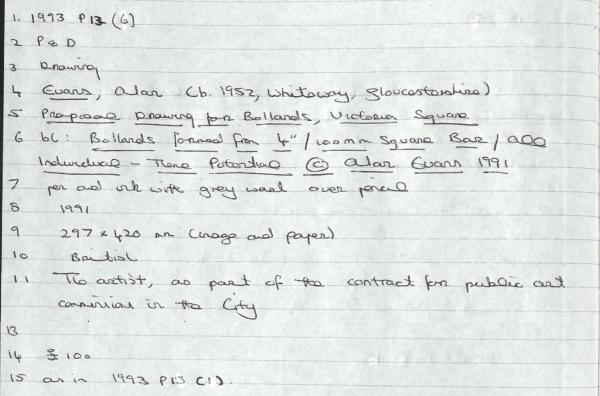 1. 1993 P13 (6)
2 P & D
3 Drawing
4 Evans, Alan (b. 1952, Whiteway, Gloucestershire)
5 Proposal Drawing for Bollards, Victoria Square
6 bl: Bollards formed from 4"/100mm Square Bar / all
Individual - Tree Potential © Alan Evans 1991
7 pen and ink with grey wash over pencil
8 1991
9 297 x 420 mm (image and paper)
10 British
11 The artist, as part of the contract for public art
commissions in the City
13
14 £100
15 as in 1993 P13 (1).